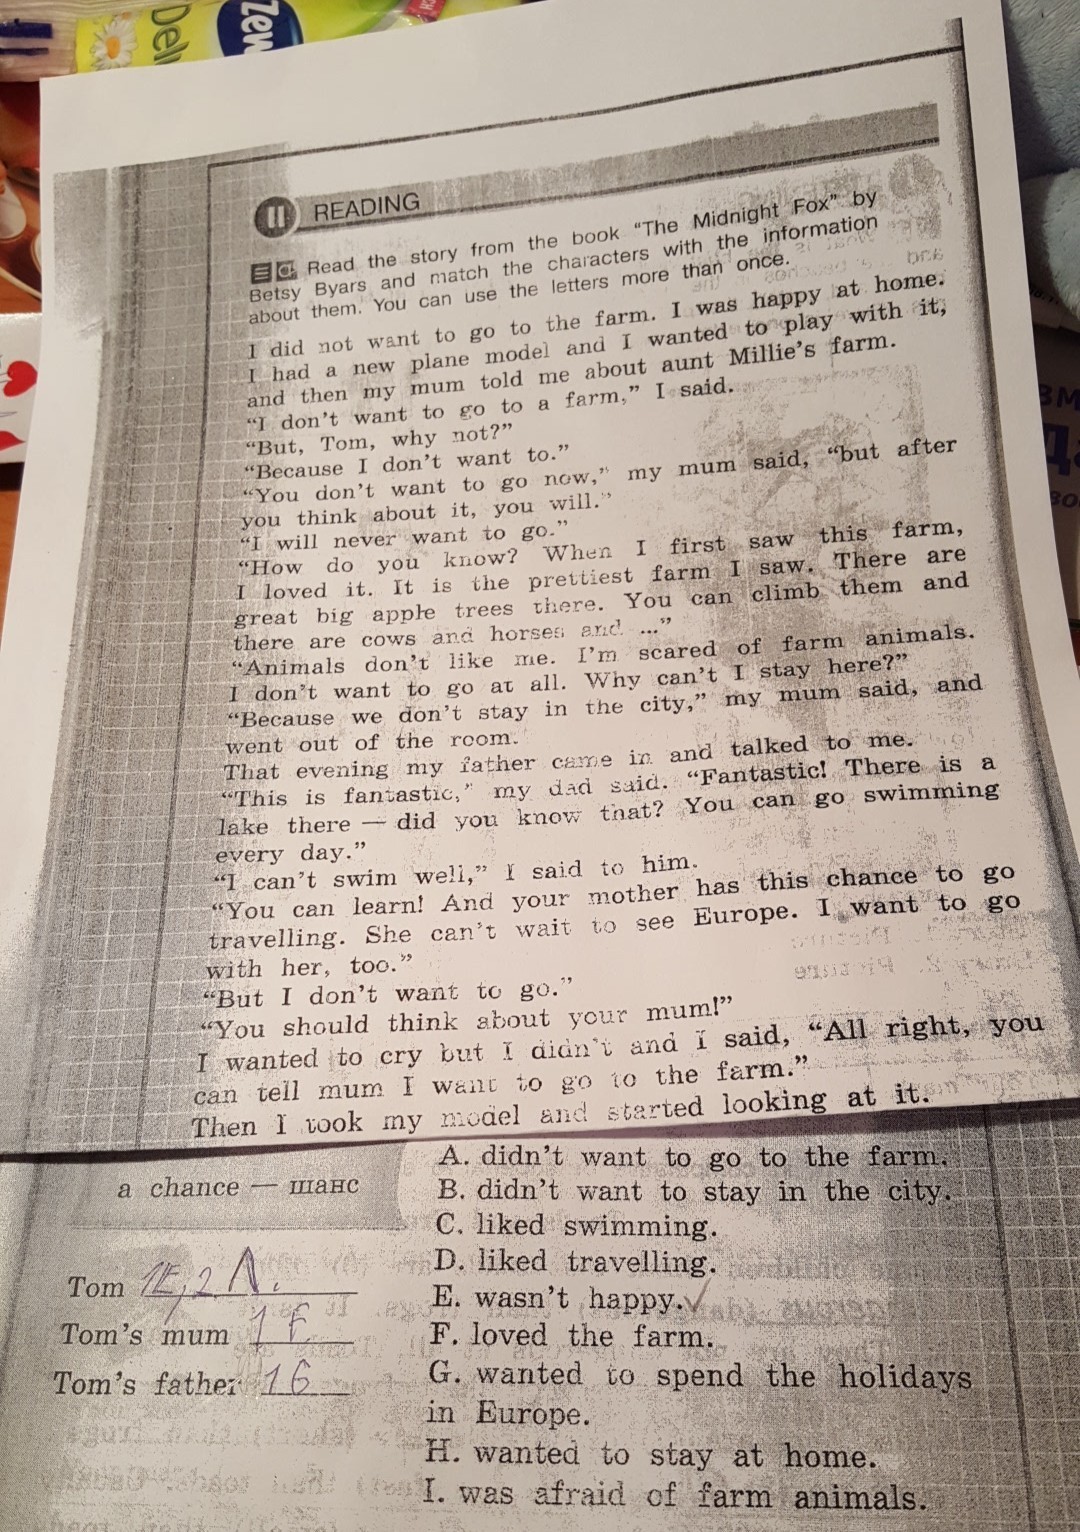 Zew
Del
II READING
Read the story from the book “The Midnight Fox” by
Betsy Byars and match the characters with the information
about them. You can use the letters more than once.
I did not want to go to the farm. I was happy at home.
I had a new plane model and I wanted to play with it,
and then my mum told me about aunt Millie’s farm.
“I don’t want to go to a farm,” I said.
“But, Tom, why not?”
“Because I don’t want to.”
“You don’t want to go now,” my mum said, “but after
you think about it, you will.”
“I will never want to go.”
“How do you know? When I first saw this farm,
I loved it. It is the prettiest farm I saw. There are
great big apple trees there. You can climb them and
there are cows and horses and ...”
“Animals don’t like me. I’m scared of farm animals.
I don’t want to go at all. Why can’t I stay here?”
“Because we don’t stay in the city,” my mum said, and
went out of the room.
That evening my father came in and talked to me.
“This is fantastic,” my dad said. “Fantastic! There is a
lake there — did you know that? You can go swimming
every day.”
“I can’t swim well,” I said to him.
“You can learn! And your mother has this chance to go
travelling. She can’t wait to see Europe. I want to go
with her, too.”
“But I don’t want to go.”
“You should think about your mum!”
I wanted to cry but I didn’t and I said, “All right, you
can tell mum I want to go to the farm.”
Then I took my model and started looking at it.
a chance — шанс
Tom 1E, 2 A.
Tom’s mum 1 F
Tom’s father 1G
A. didn’t want to go to the farm.
B. didn’t want to stay in the city.
C. liked swimming.
D. liked travelling.
E. wasn’t happy.
F. loved the farm.
G. wanted to spend the holidays
in Europe.
H. wanted to stay at home.
I. was afraid of farm animals.